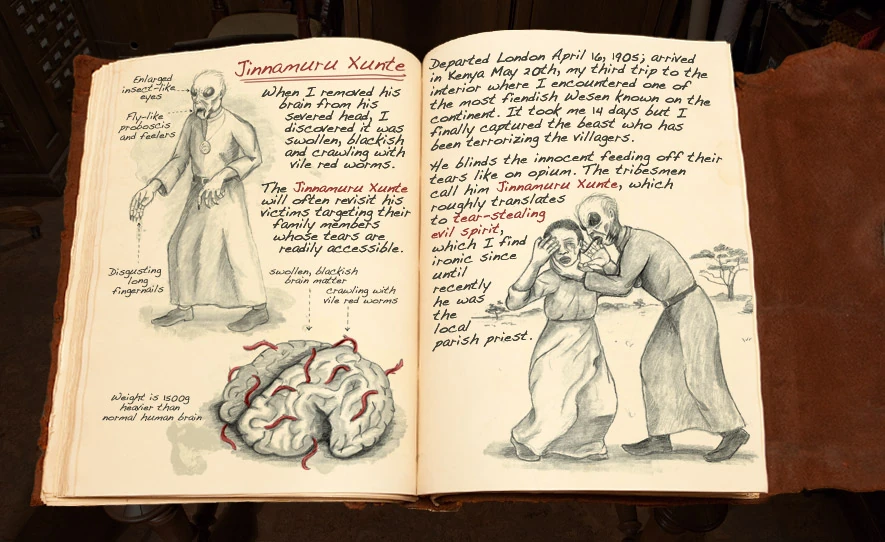 Jinnamuru Xunte
Enlarged
insect-like
eyes
Fly-like
proboscis
and feelers
When I removed his
brain from his
severed head, I
discovered it was
swollen, blackish
and crawling with
vile red worms.
The Jinnamuru Xunte
will often revisit his
victims targeting their
family members
whose tears are
readily accessible.
Disgusting
long
fingernails
swollen, blackish
brain matter
crawling with
vile red worms
Weight is 1500g
heavier than
normal human brain
Departed London April 16, 1905; arrived
in Kenya May 20th, my third trip to the
interior where I encountered one of
the most fiendish Wesen known on the
continent. It took me 14 days but I
finally captured the beast who has
been terrorizing the villagers.
He blinds the innocent feeding off their
tears like on opium. The tribesmen
call him Jinnamuru Xunte, which
roughly translates
to tear-stealing
evil spirit,
which I find
ironic since
until
recently
he was
the
local
parish priest.